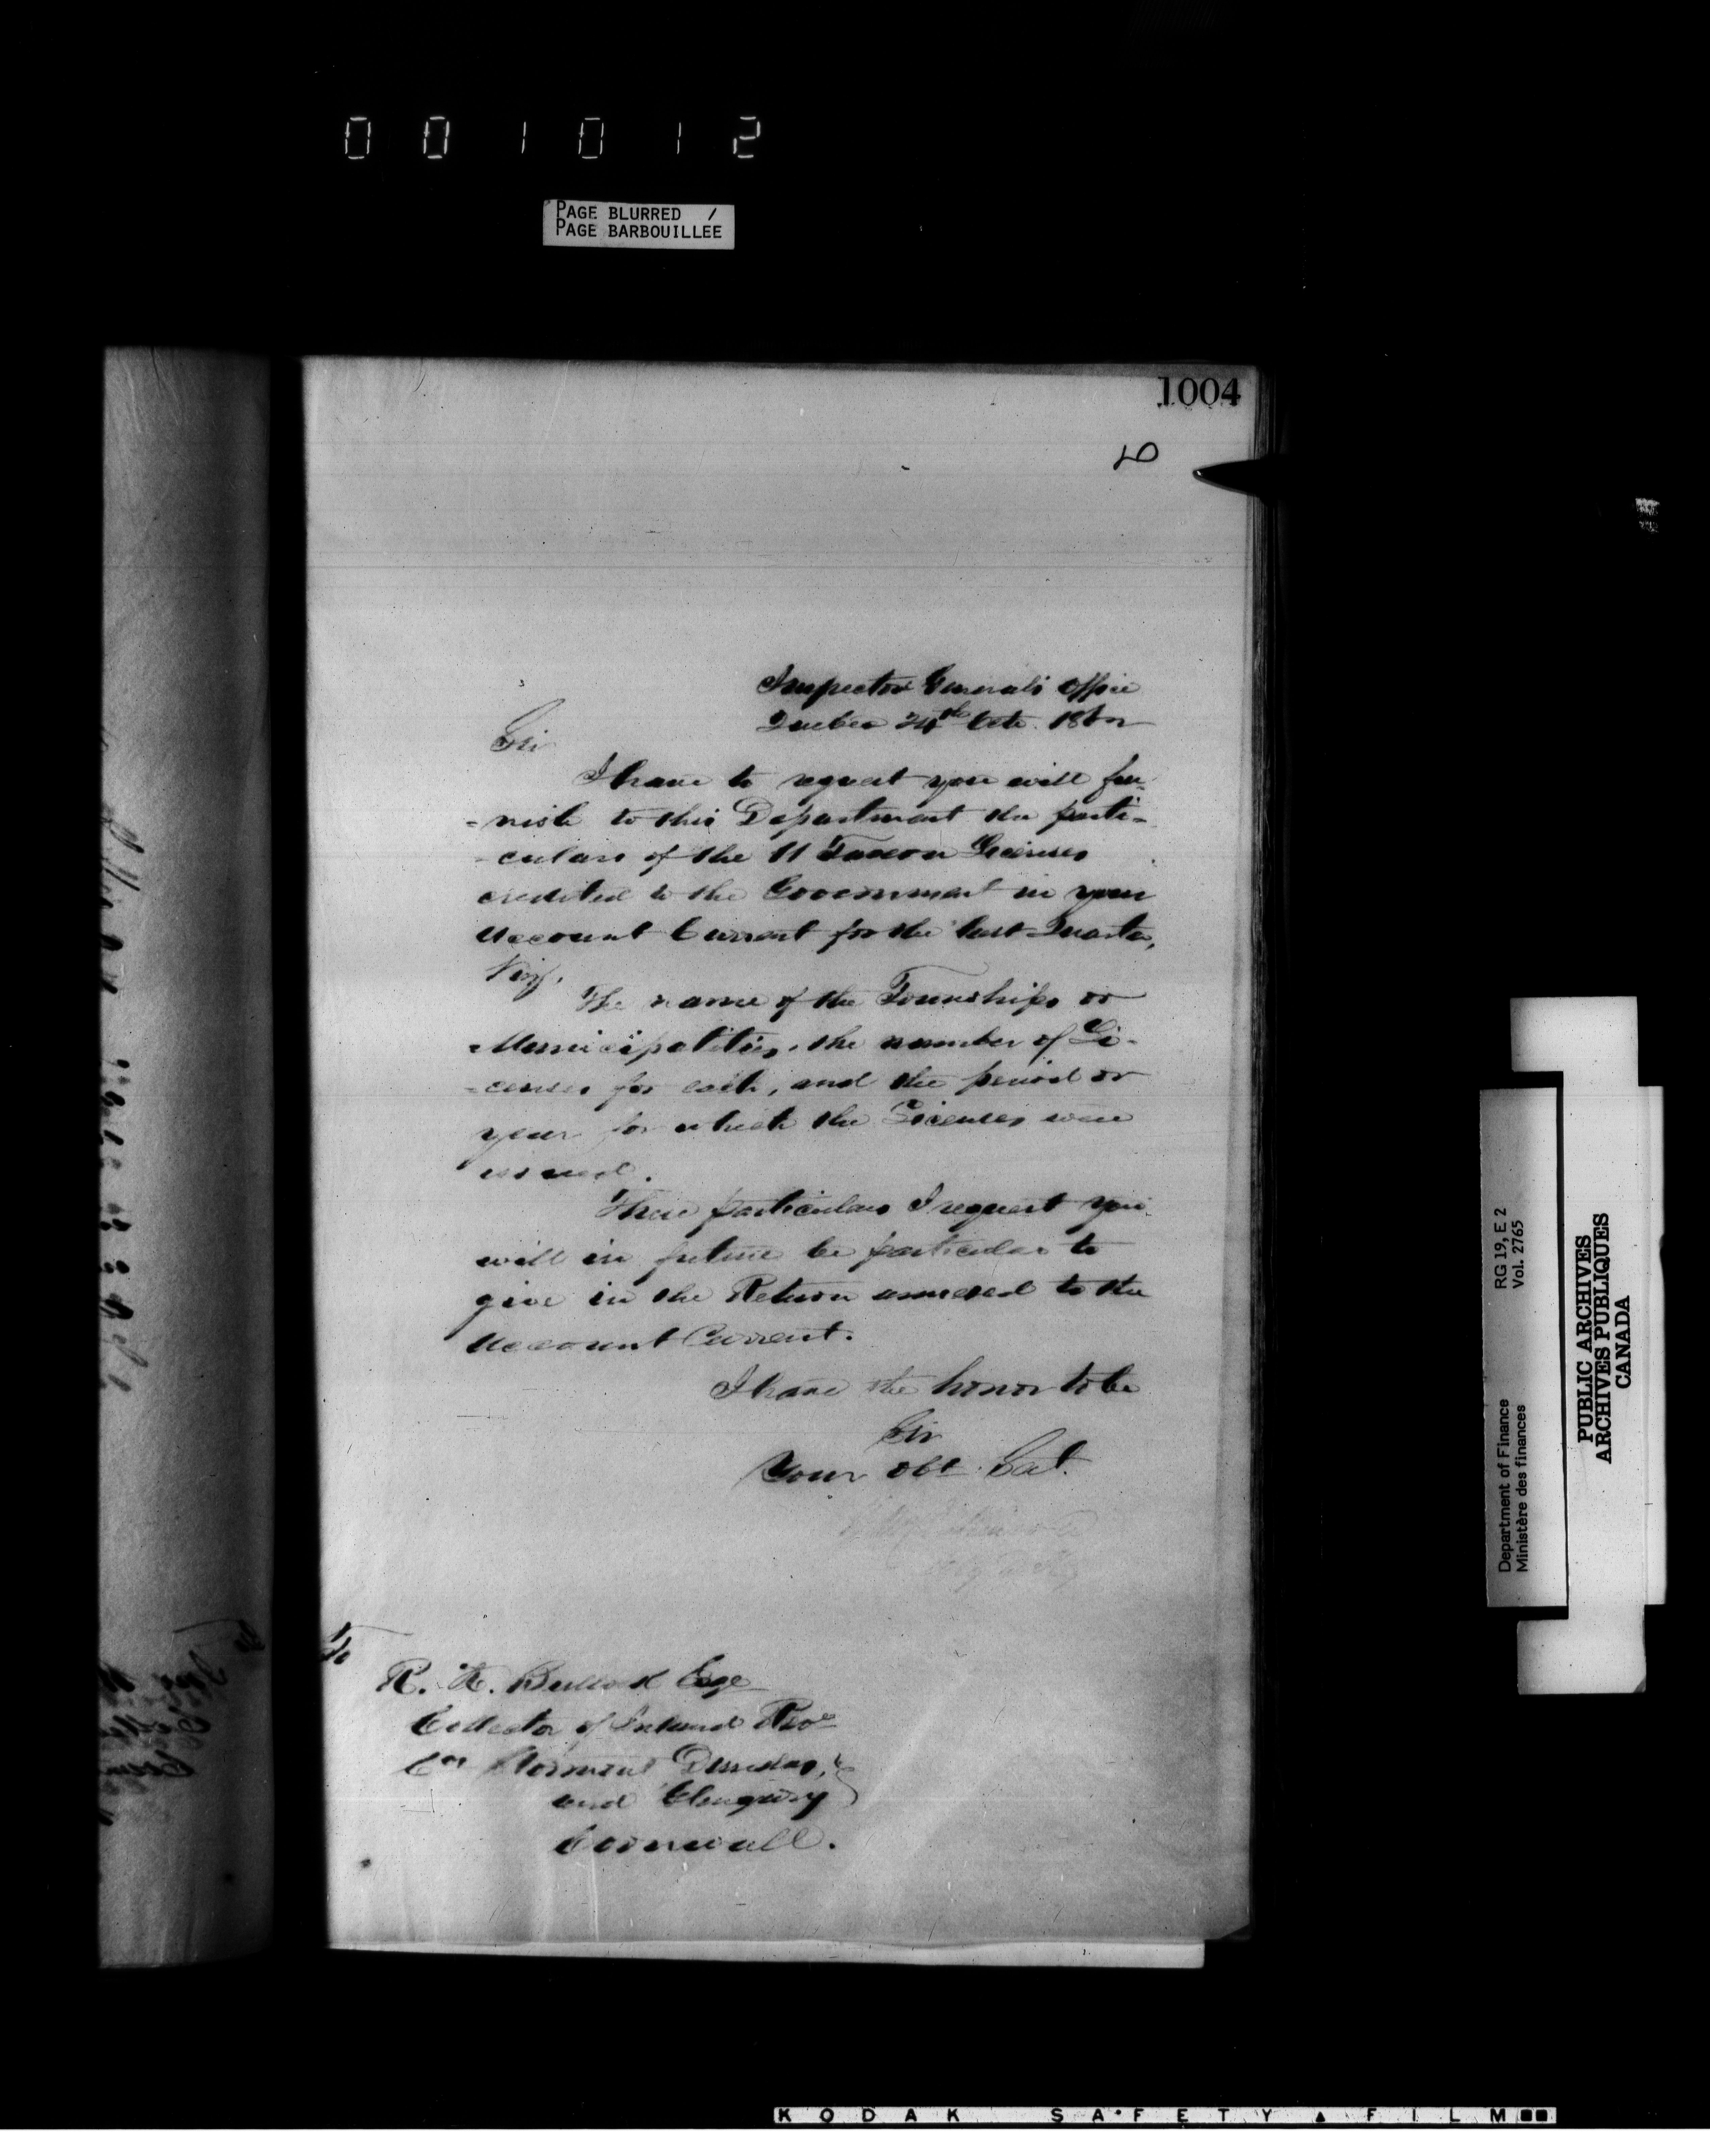 001012
PAGE BLURRED /
PAGE BARBOUILLEE
1004
Inspector Generals Office
Quebec 24th Octr.
Sir
I have to request you will fur-
-nish to this Department the parti-
-culars of the 11 Tavern Licenses
credited to the Government in your
Account Current for the last Quarter,
Viz,
The name of the Townships or
Municipalities, the number of Li-
-censes for each, and the period or
year for which the Licenses were
issued.
These particulars I request you
will in future be particular to
give in the Return annexed to the
Account Current.
I have the honor to be
Sir
Your obt Sert.
To
R. K. Bullock Esqe
Collector of Inland Reve
Cos Stormont Dundas,
and Glengarry
Cornwall.
RG 19, E 2
Vol. 2765
Department of Finance
Ministère des finances
PUBLIC ARCHIVES
ARCHIVES PUBLIQUES
CANADA
KODAK SAFETY FILM